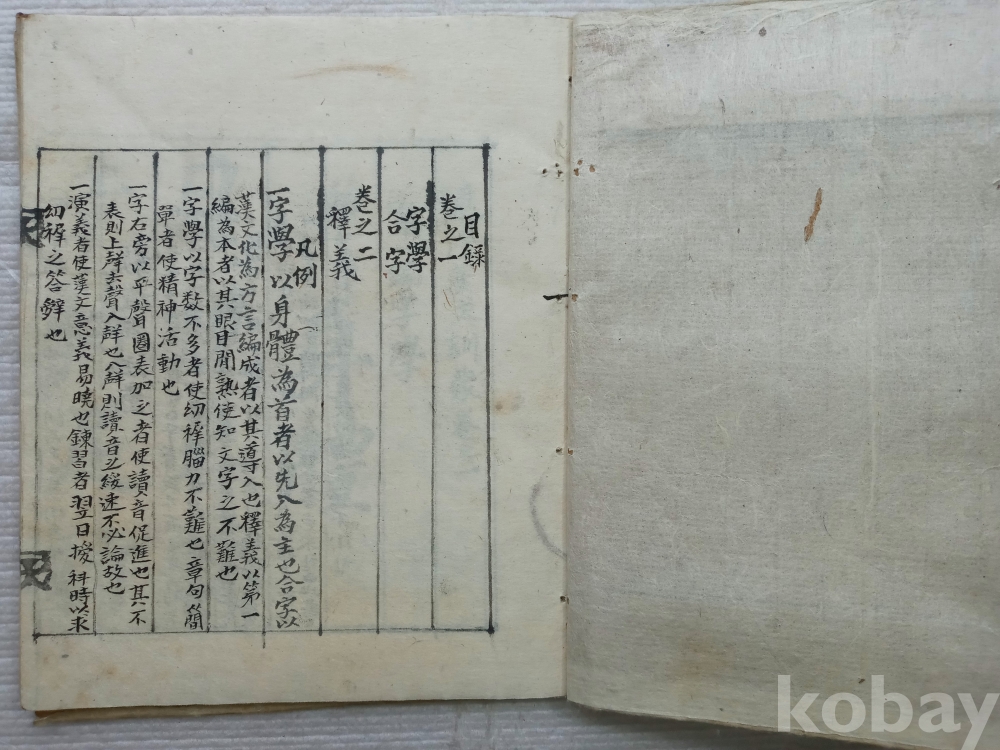 目録
卷之一
字學
合字
卷之二
釋義
凡例
一字學以身體為首者以先入為主也合字以
漢文化為方言編成者以其導入也釋義以第一
編為本者以其眼目聞熟使知文字之不難也
一字學以字数不多者使幼稺腦力不難也章句簡
單者使精神活動也
一字右旁以平聲圈表加之者使讀音促進也其不
表則上聲去聲入聲也入聲則讀音之緩速不必論故也
一演義者使漢文意義易曉也鍊習者翌日授科時以求
幼稺之答辭也
kobay